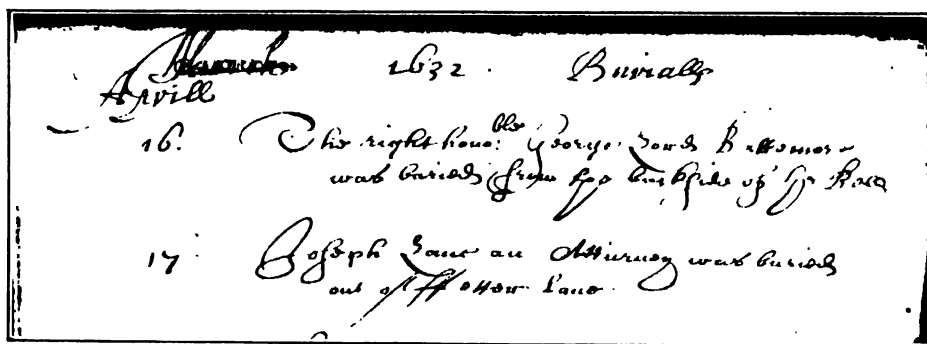 1632. Burialls
Aprill
16. The right hono:ble George Lord Baltemore
was buried from the backside of the
17 Joseph Lane an Atturney was buried
out of ffetter Lane.